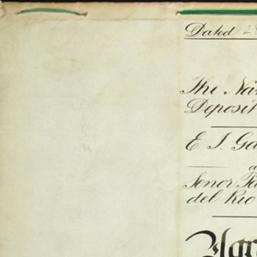 Dated 2
The Na
Deposit
E. J. Ga
a
Senor Fa
del Rio
Agr